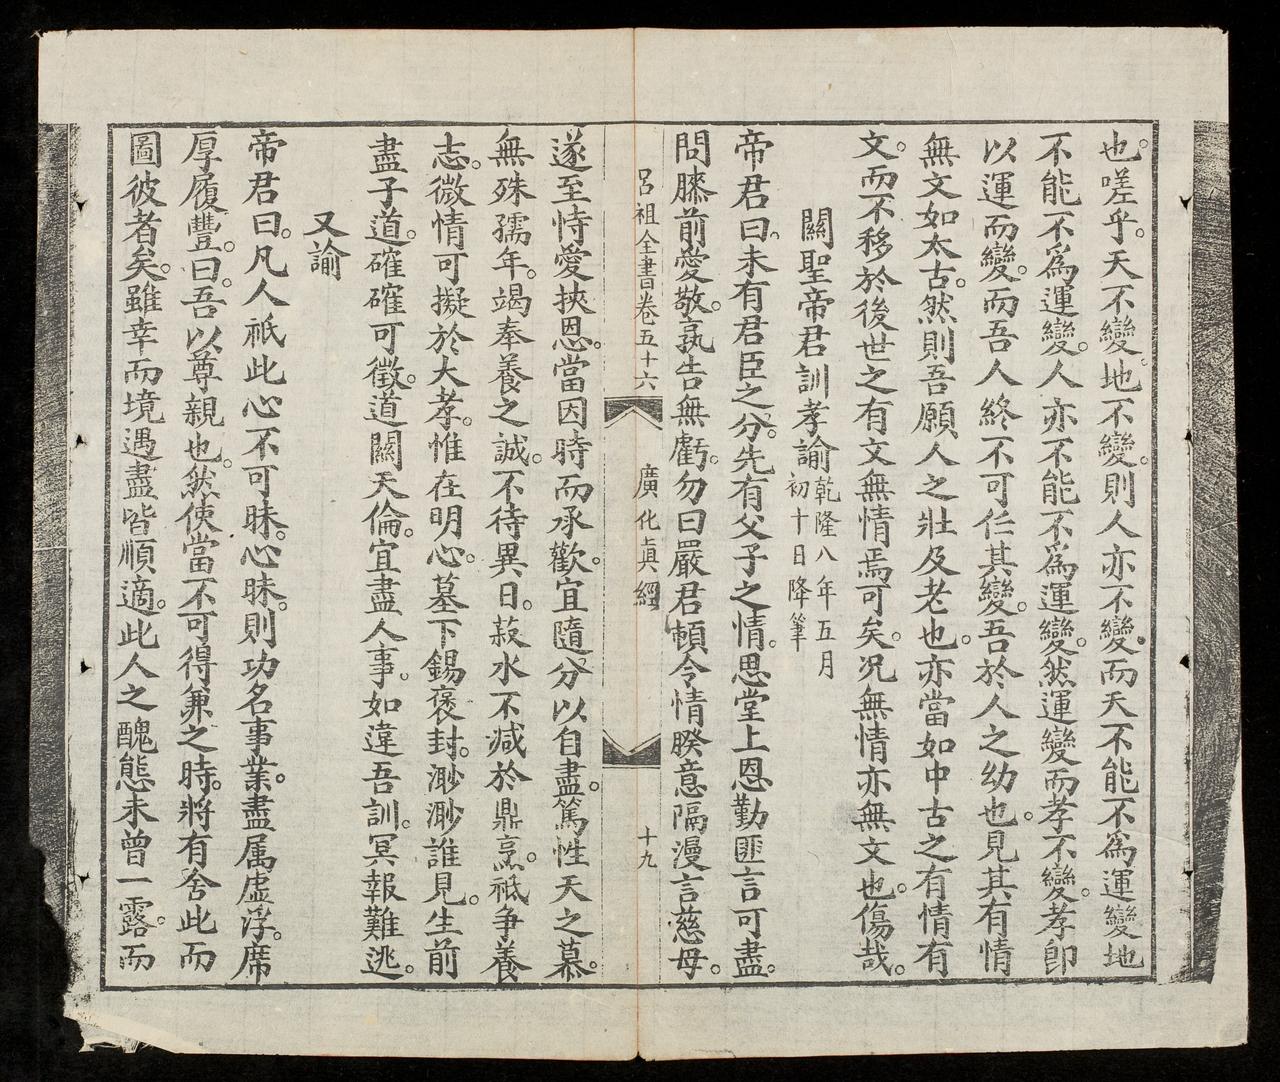 也。嗟乎。天不變。地不變。則人亦不變。而天不能不爲運變地
不能不爲運變。人亦不能不爲運變。然運變而孝不變。孝卽
以運而變。而吾人終不可任其變。吾於人之幼也。見其有情
無文如太古。然則吾願人之壯及老也。亦當如中古之有情有
文。而不移於後世之有文無情焉可矣。况無情亦無文也。傷哉。
關聖帝君訓孝諭乾隆八年五月
初十日降筆
帝君曰。未有君臣之分。先有父子之情。思堂上恩勤匪言可盡。
問膝前愛敬。孰告無虧。勿曰嚴君頓令情睽意隔漫言慈母。
呂祖全書卷五十六 廣化眞經 十九
遂至恃愛挾恩。當因時而承歡。宜隨分以自盡。篤性天之慕。
無殊孺年。竭奉養之誠。不待異日。菽水不減於鼎烹。祇争養
志。微情可擬於大孝。惟在明心。墓下錫褒封。渺渺誰見。生前
盡子道。確確可徵。道關天倫。宜盡人事。如違吾訓。冥報難逃。
又諭
帝君曰。凡人祇此心不可昧。心昧。則功名事業。盡属虛浮。席
厚履豐。曰。吾以尊親也。然使當不可得兼之時。將有舍此而
圖彼者矣。雖幸而境遇盡皆順適。此人之醜態未曾一露。而